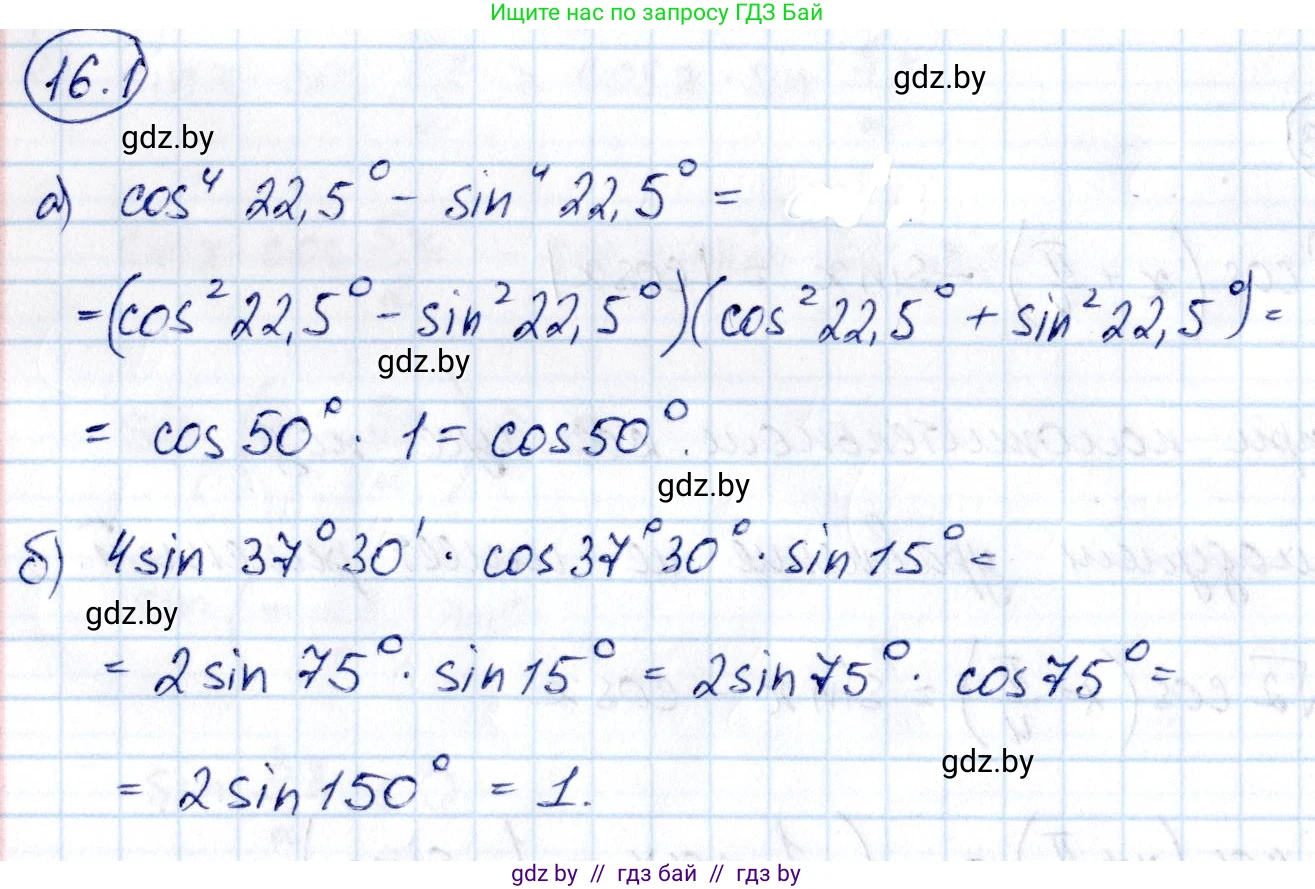 Ищите нас по запросу ГДЗ Бай
16.1
gdz.by
gdz.by
а) cos⁴ 22,5° - sin⁴ 22,5° =
= (cos² 22,5° - sin² 22,5°)(cos² 22,5° + sin² 22,5°) =
gdz.by
= cos 50° · 1 = cos 50°.
gdz.by
б) 4 sin 37°30' · cos 37°30° · sin 15° =
gdz.by
= 2 sin 75° · sin 15° = 2 sin 75° · cos 75° =
gdz.by
= 2 sin 150° = 1.
gdz.by // гдз бай // гдз by